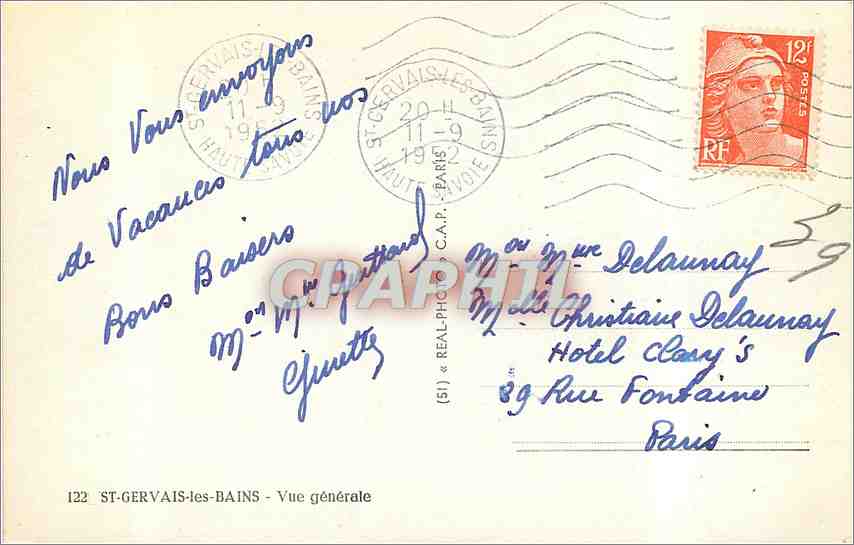 Nous Vous envoyons
de Vacances tous nos
Bons Baisers
Mon Mme Guittard
Ginette
ST-GERVAIS-LES-BAINS
11-9
HAUTE-SAVOIE
ST-GERVAIS-LES-BAINS
20-H
11-9
1952
HAUTE-SAVOIE
12F
POSTES
RF
(51) « REAL-PHOTO » C.A.P. - PARIS
CPAPHIL
Mon Mme Delaunay
Melle Christiane Delaunay
Hotel Clary's
39 Rue Fontaine
Paris
39
122 ST-GERVAIS-les-BAINS - Vue générale